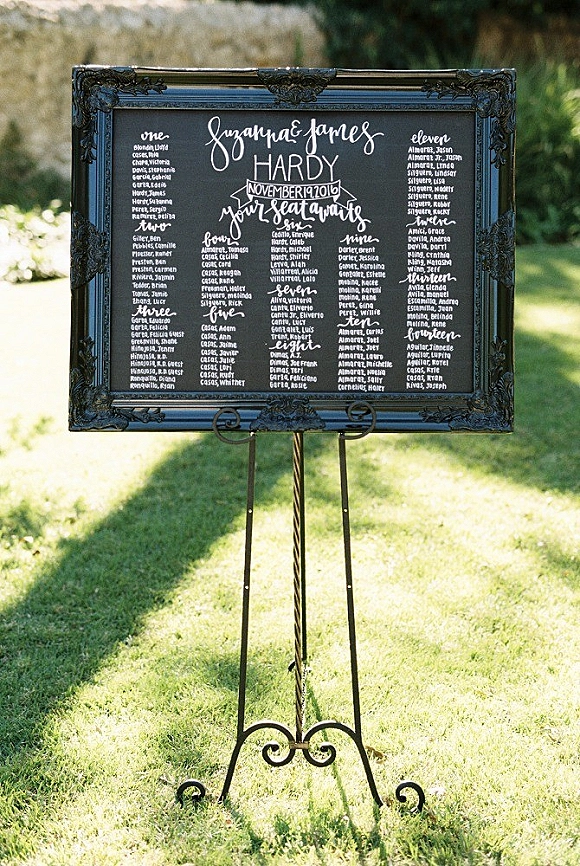 Suzanna & James
HARDY
NOVEMBER 19 2016
Your seat awaits
one
Blondin, Lloyd
Casas, Mia
Chapa, Victoria
Davis, Stephanie
Garcia, Gabriel
Garza, Eddie
Hardy, James
Hardy, Suzanna
Perez, Sergio
Ramirez, Delita
two
Gilley, Ben
Peebles, Camille
Preston, Ben
Preston, Carmen
Rivera, Jazmin
Tedder, Brian
Torres, Jamie
Zhang, Lucy
three
Garza, Eduardo
Garza, Felicia
Garza, Felicia Guest
Gretsville, Shane
Hinojosa, Jenny
Hinojosa, R.D.
Hinojosa, R.D. Guest
Ronquillo, Diana
Ronquillo, Ryan
four
Almaraz, Tomasa
Casas, Cecilia
Casas, Cora
Casas, Keagan
Casas, Reno
Freeman, Haley
Silguero, Melinda
Silguero, Rick
five
Casas, Adam
Casas, Ann
Casas, Jaime
Casas, Javier
Casas, Julie
Casas, Lori
Casas, Rudy
Casas, Whitney
six
Cedillo, Enrique
Hardy, Caleb
Hardy, Michael
Hardy, Shirley
Leyva, Alan
Villarreal, Alicia
Villarreal, Lalo
seven
Aliva, Victoria
Cantu, Eliverto
Cantu Jr., Eliverto
Cantu, Lucy
Gonzalez, Luis
Trent, Robert
eight
Dimas, A.J.
Dimas, Joe Frank
Dimas, Teri
Garza, Feliciano
Garza, Rosie
nine
Darley, Brent
Darley, Jessica
Gomez, Karolina
Gonzalez, Estefe
Molina, Kacee
Molina, Karelli
Molina, Rene
Perez, Gina
Perez, Willie
ten
Almaraz, Carlos
Almaraz, Joel
Almaraz, Joey
Almaraz, Lauro
Almaraz, Michelle
Almaraz, Noelia
Almaraz, Sally
Cornelius, Haley
eleven
Almaraz, Jason
Almaraz Jr., Jason
Almaraz, Lynda
Silguero, Lindsay
Silguero, Lisa
Silguero, Maddy
Silguero, Rene
Silguero, Robbi
Silguero, Rocky
twelve
Amici, Grace
Davila, Andrea
Davila, Darryl
Kling, Cynthia
Kling, Natasha
Winn, Jeff
thirteen
Avila, Glenda
Avila, Manuel
Escamilla, Andrea
Escamilla, Juan
Molina, Belinda
Molina, Rene
fourteen
Aguilar, Jinnelle
Aguilar, Lupita
Aguilar, Rafael
Casas, Kyle
Casas, Ryan
Rivas, Joseph